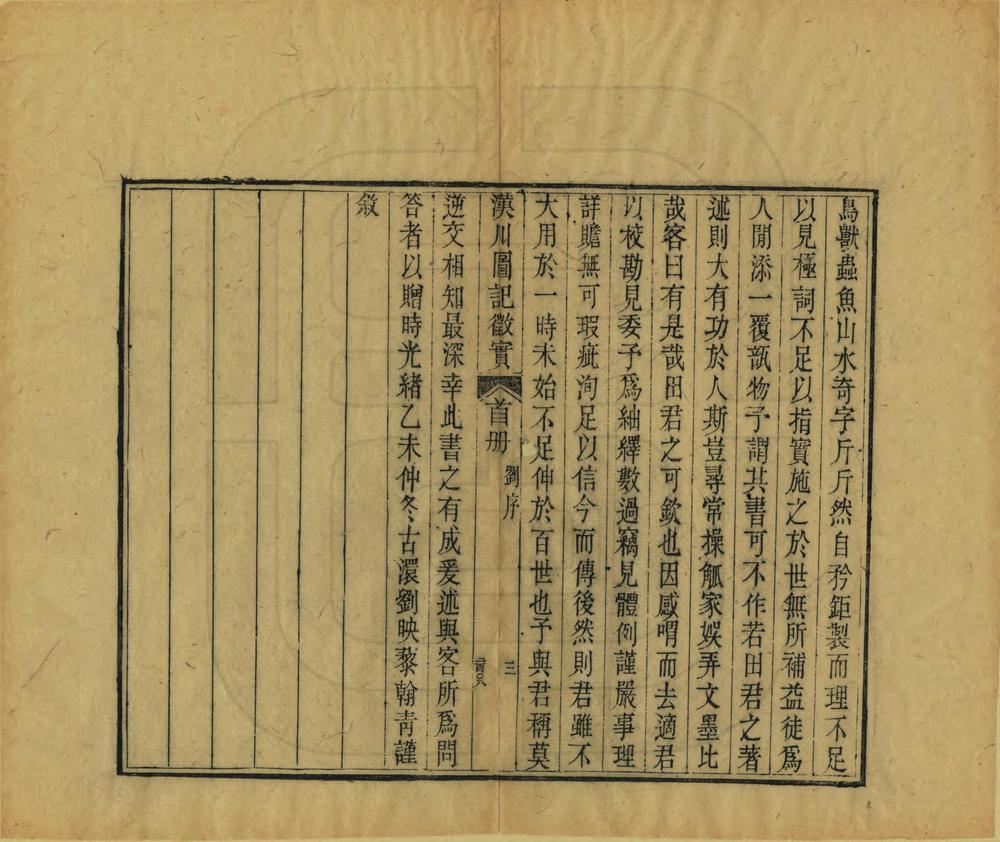 鳥獸蟲魚山水奇字斤斤然自矜鉅製而理不足
以見極詞不足以指實施之於世無所補益徒爲
人閒添一覆瓿物予謂其書可不作若田君之著
述則大有功於人斯豈尋常操觚家娛弄文墨比
哉客曰有是哉田君之可欽也因感喟而去適君
以校勘見委予爲紬繹數過竊見體例謹嚴事理
詳贍無可瑕疵洵足以信今而傳後然則君雖不
大用於一時未始不足伸於百世也予與君稱莫
漢川圖記徵實
首册
劉序
三
逆交相知最深幸此書之有成爰述與客所爲問
答者以贈時光緒乙未仲冬古澴劉映藜翰青謹
敘